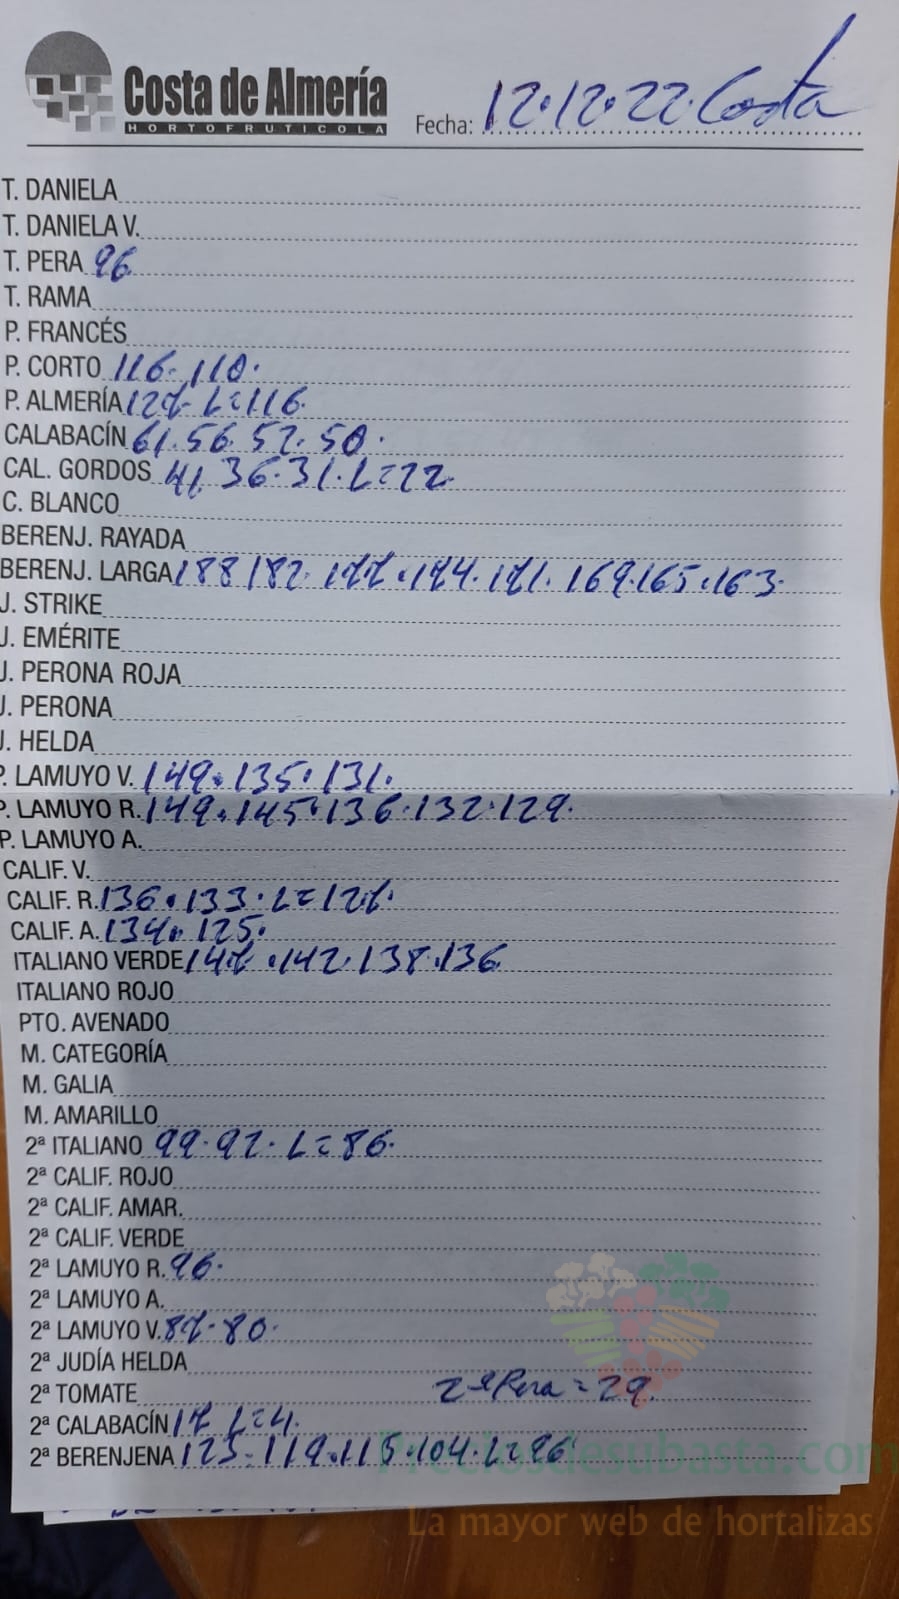 Costa de Almería
HORTOFRUTICOLA
Fecha: 12.12.22 Costa
T. DANIELA
T. DANIELA V.
T. PERA 96
T. RAMA
P. FRANCÉS
P. CORTO 116. 110.
P. ALMERÍA 127- L=116.
CALABACÍN 61.56.52.50.
CAL. GORDOS 41.36.31.L=22.
C. BLANCO
BERENJ. RAYADA
BERENJ. LARGA 188 182. 177.174.171. 169.165.163.
J. STRIKE
J. EMÉRITE
J. PERONA ROJA
J. PERONA
J. HELDA
P. LAMUYO V. 149.135.131.
P. LAMUYO R. 149.145.136.132.129.
P. LAMUYO A.
CALIF. V.
CALIF. R. 136.133.L=127.
CALIF. A. 134.125.
ITALIANO VERDE 147.142.138.136
ITALIANO ROJO
PTO. AVENADO
M. CATEGORÍA
M. GALIA
M. AMARILLO
2ª ITALIANO 99.92. L=86.
2ª CALIF. ROJO
2ª CALIF. AMAR.
2ª CALIF. VERDE
2ª LAMUYO R. 96.
2ª LAMUYO A.
2ª LAMUYO V. 87.80.
2ª JUDÍA HELDA
2ª TOMATE 2ª Pera = 29
2ª CALABACÍN 17 L=4.
2ª BERENJENA 123-119.115.104.L=96
Preciosdesubasta.com
La mayor web de hortalizas